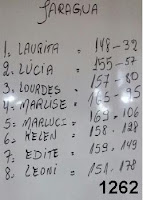 JARAGUA
1. LAURITA = 148-32
2. LÚCIA = 155-57
3. LOURDES = 157-80
4. MARLISE = 165-95
5. MARLUCI = 169-106
6. HELEN = 158-128
7. EDITE = 159-149
8. LEONI = 151-178
1262